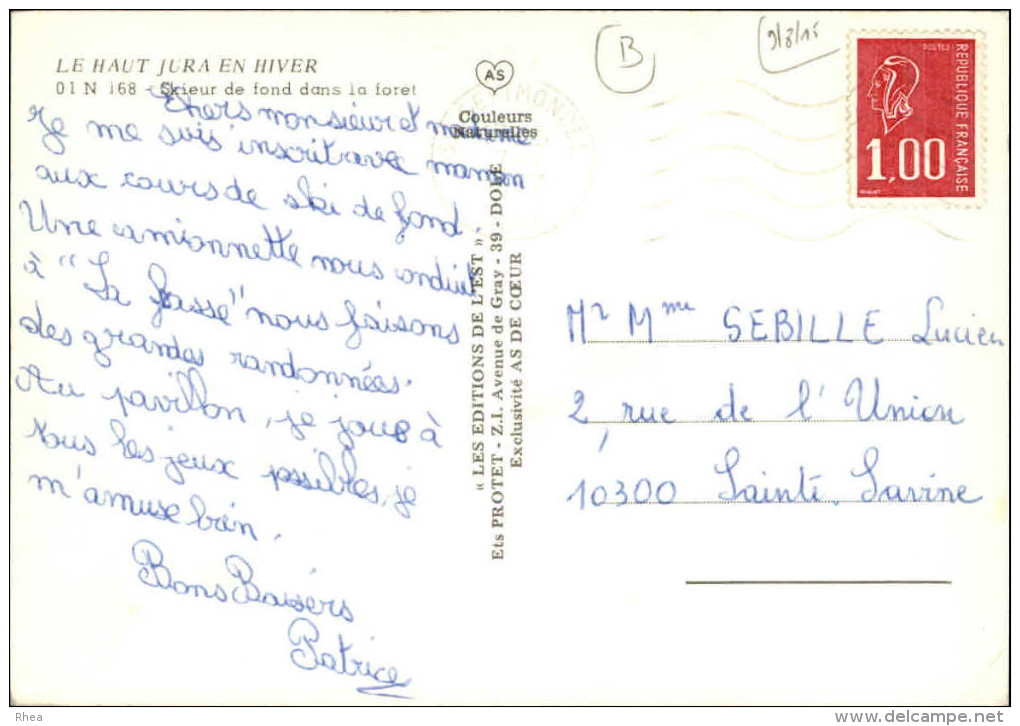 LE HAUT JURA EN HIVER
01 N 168 - Skieur de fond dans la foret
AS
Couleurs
Naturelles
Chers monsieur et madame
Je me suis inscrit avec maman
aux cours de ski de fond.
Une camionnette nous conduit
à "La fasse" nous faisons
des grandes randonnées.
Au pavillon, je joue à
tous les jeux possibles, je
m'amuse bien.
Bons Baisers
Patrice
« LES EDITIONS DE L'EST »
Ets PROTET - Z.I. Avenue de Gray - 39 - DOLE
Exclusivité AS DE CŒUR
B
9/8/15
POSTES
REPUBLIQUE FRANÇAISE
1,00
Mr Mme SEBILLE Lucien
2, rue de l'Union
10300 Sainte Savine
Rhea
www.delcampe.net